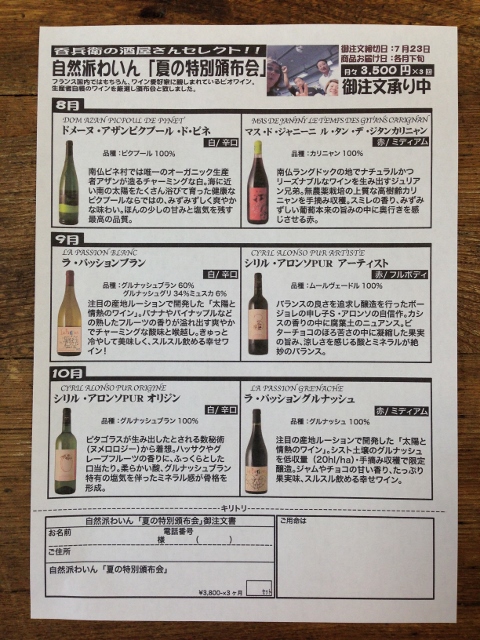 呑兵衛の酒屋さんセレクト！！
自然派わいん「夏の特別頒布会」
フランス国内ではもちろん、ワイン愛好家に親しまれているビオワイン、
生産者自慢のワインを厳選し頒布会と致しました。
御注文締切日：7月23日
商品お届け日：各月下旬
月々3,500円×3回
御注文承り中
8月
DOM AZAN PICPOUL DE PINET
ドメーヌ・アザンピクプール・ド・ピネ
白/辛口
品種：ピクプール 100%
南仏ピネ村では唯一のオーガニック生産
者アザンが造るチャーミングな白。海に近
い南の太陽をたくさん浴びて育った健康な
ピクプールならではの、みずみずしく爽やか
な味わい。ほんの少しの甘みと塩気を残す
最高の品質。
MAS DE JANINY LE TEMPS DES GITANS CARIGNAN
マス・ド・ジャニーニ ル・タン・デ・ジタンカリニャン
赤/ミディアム
品種：カリニャン 100%
南仏ラングドックの地でナチュラルかつ
リーズナブルなワインを生み出すジュリア
ン兄弟。無農薬栽培の上質な高樹齢カリ
ニャンを手摘み収穫。スミレの香り、みずみ
ずしい葡萄本来の旨みの中に奥行きを感
じさせる赤。
9月
LA PASSION BLANC
ラ・パッションブラン
白/辛口
品種：グルナッシュブラン 60%
グルナッシュグリ 34%ミュスカ 6%
注目の産地ルーションで開発した「太陽と
情熱のワイン」。バナナやパイナップルなど
の熟したフルーツの香りが溢れ出す爽やか
でチャーミングな酸味と喉越し。きゅっと
冷やして美味しく、スルスル飲める幸せワ
イン！
CYRIL ALONSO PUR ARTISTE
シリル・アロンソPUR アーティスト
赤/フルボディ
品種：ムールヴェードル 100%
バランスの良さを追求し醸造を行ったボー
ジョレの申し子S・アロンソの自信作。カシ
スの香りの中に腐葉土のニュアンス。ビ
ターチョコのほろ苦さの中に凝縮した果実
の旨み、涼しさを感じる酸とミネラルが絶
妙のバランス。
10月
CYRIL ALONSO PUR ORIGINE
シリル・アロンソPUR オリジン
白/辛口
品種：グルナッシュブラン 100%
ピタゴラスが生み出したとされる数秘術
(ヌメロロジー)から着想。ハッサクやグ
レープフルーツの香りに、ふっくらとした
口当たり。柔らかい酸、グルナッシュブラン
特有の塩気を伴ったミネラル感が骨格を
形成。
LA PASSION GRENACHE
ラ・パッショングルナッシュ
赤/ミディアム
品種：グルナッシュ 100%
注目の産地ルーションで開発した「太陽と
情熱のワイン」。シスト土壌のグルナッシュ
を低収量（20hl/ha）・手摘み収穫で限定
醸造。ジャムやチョコの甘い香り、たっぷり
果実味、スルスル飲める幸せワイン。
キリトリ
自然派わいん「夏の特別頒布会」御注文書
お名前
様
電話番号
（　　）
ご住所
自然派わいん「夏の特別頒布会」
¥3,800-×3ヶ月
セット
ご用命は